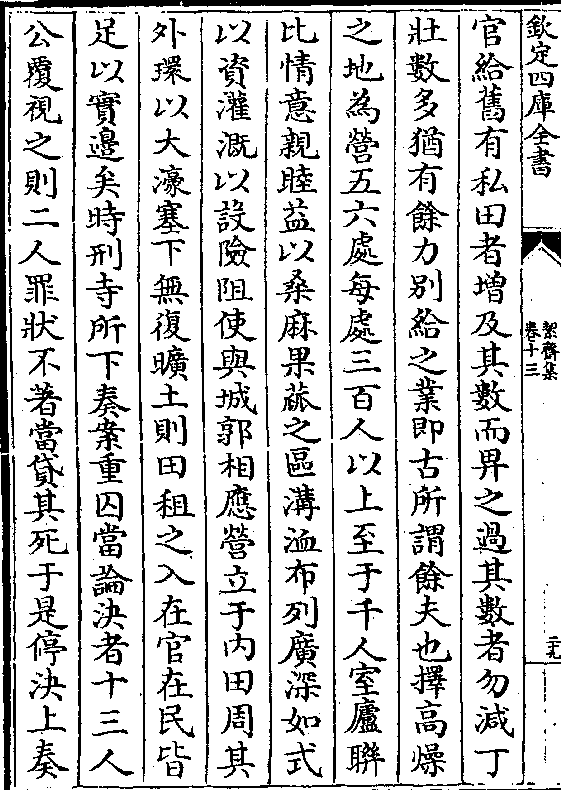 欽定四庫全書
絜齋集
卷十三
二十九
官給舊有私田者增及其數而畀之過其數者勿減丁
壯數多猶有餘力別給之業即古所謂餘夫也擇高燥
之地為營五六處每處三百人以上至于千人室廬聯
比情意親睦益以桑麻果蓏之區溝洫布列廣深如式
以資灌溉以設險阻使與城郭相應營立于内田周其
外環以大濠塞下無復曠土則田租之入在官在民皆
足以實邊矣時刑寺所下奏案重囚當論決者十三人
公覆視之則二人罪狀不著當貸其死于是停決上奏